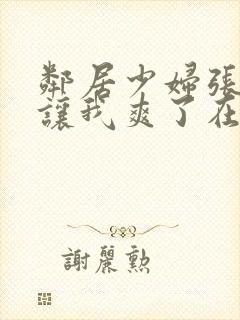 鄰居少婦張
讓我爽了在
謝麗勲